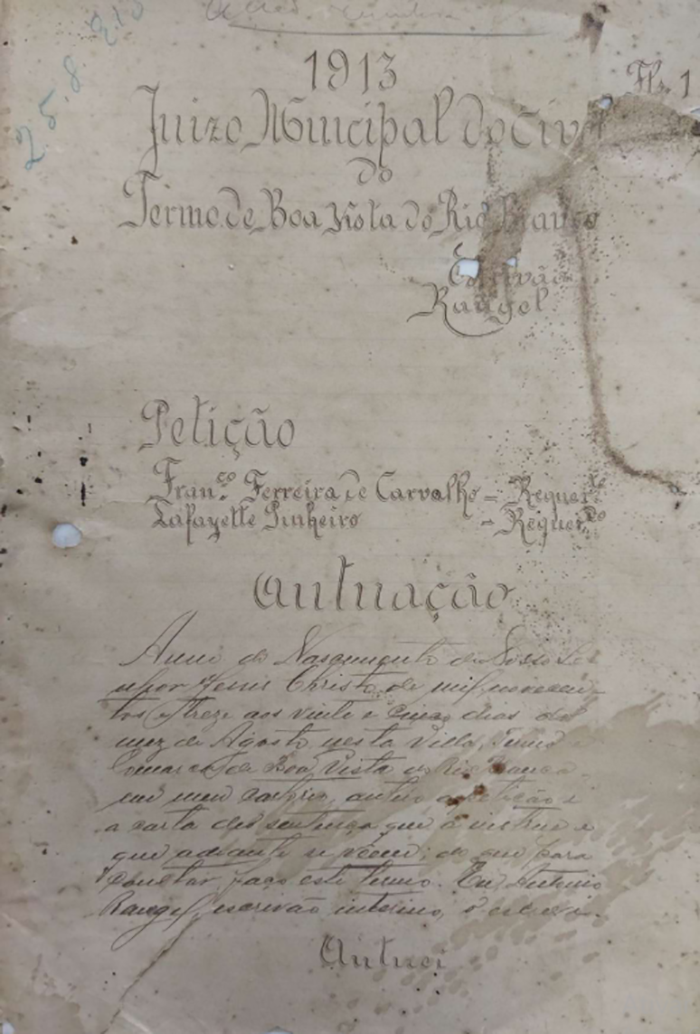 25.8.913
1913
Fls. 1
Juizo Municipal do Civel
do
Termo de Boa Vista do Rio Branco
Escrivão
Rangel
Petição
Fran.co Ferreira de Carvalho = Requer.te
Lafayette Pinheiro - Requer.do
Autuação
Anno do Nascimento de Nosso Se-
nhor Jesus Christo de mil novecen-
tos e treze aos vinte e cinco dias do
mez de Agosto nesta Villa, Termo e
Comarca de Boa Vista do Rio Branco,
em meu cartorio, autuo a petição e
a carta de sentença que a instrue e
que adeante se vêem; do que para
constar faço este termo. Eu, Antonio
Rangel, escrivão interino, o escrevi.
Autuei